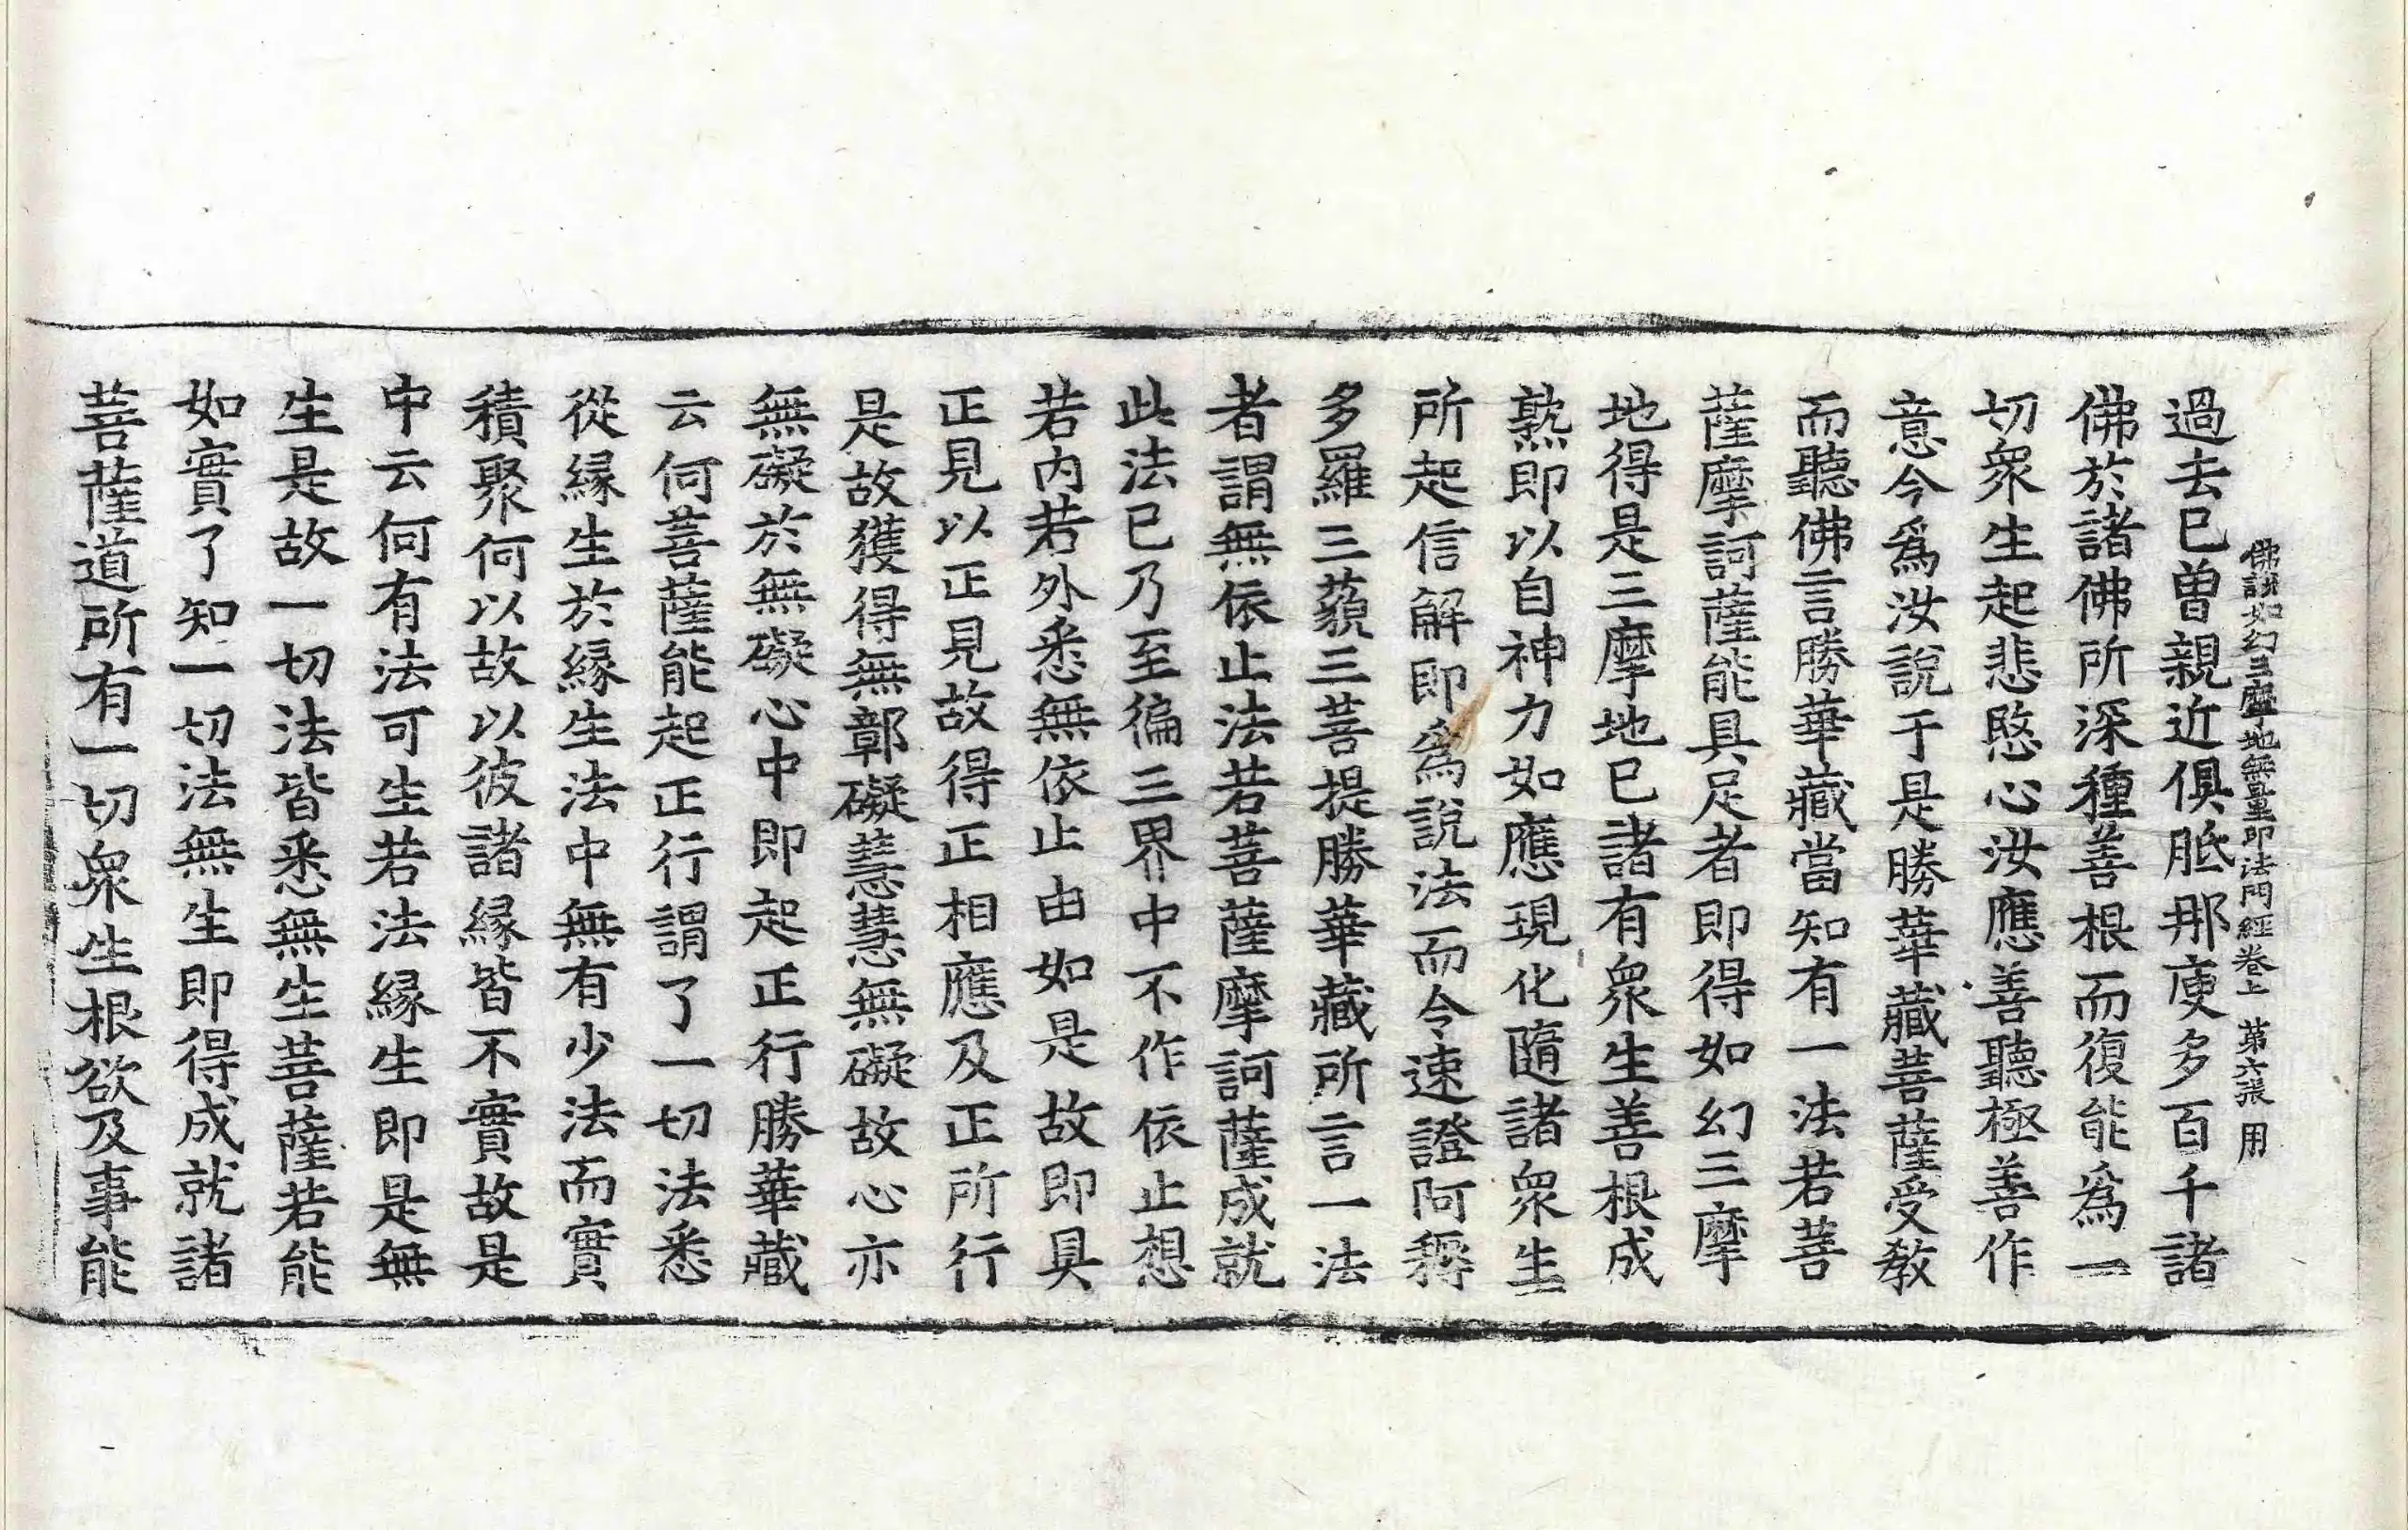 佛說如幻三摩地無量印法門經卷上　第六張　用
過去已曾親近俱胝那庾多百千諸
佛於諸佛所深種善根而復能爲一
切衆生起悲愍心汝應善聽極善作
意今爲汝說于是勝華藏菩薩受敎
而聽佛言勝華藏當知有一法若菩
薩摩訶薩能具足者即得如幻三摩
地得是三摩地已諸有衆生善根成
熟即以自神力如應現化隨諸衆生
所起信解即爲說法而令速證阿耨
多羅三藐三菩提勝華藏所言一法
者謂無依止法若菩薩摩訶薩成就
此法已乃至徧三界中不作依止想
若内若外悉無依止由如是故即具
正見以正見故得正相應及正所行
是故獲得無鄣礙慧慧無礙故心亦
無礙於無礙心中即起正行勝華藏
云何菩薩能起正行謂了一切法悉
從緣生於緣生法中無有少法而實
積聚何以故以彼諸緣皆不實故是
中云何有法可生若法緣生即是無
生是故一切法皆悉無生菩薩若能
如實了知一切法無生即得成就諸
菩薩道所有一切衆生根欲及事能